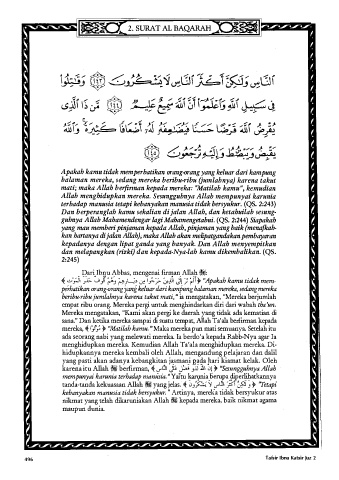 2. SURAT AL BAQARAH
النَّاسِ وَلَٰكِنَّ أَكْثَرَ النَّاسِ لَا يَشْكُرُونَ ﴿٢٤٣﴾ وَقَاتِلُوا
فِي سَبِيلِ اللَّهِ وَاعْلَمُوا أَنَّ اللَّهَ سَمِيعٌ عَلِيمٌ ﴿٢٤٤﴾ مَّن ذَا الَّذِي
يُقْرِضُ اللَّهَ قَرْضًا حَسَنًا فَيُضَاعِفَهُ لَهُ أَضْعَافًا كَثِيرَةً وَاللَّهُ
يَقْبِضُ وَيَبْسُطُ وَإِلَيْهِ تُرْجَعُونَ ﴿٢٤٥﴾
Apakah kamu tidak memperhatikan orang-orang yang keluar dari kampung
halaman mereka, sedang mereka beribu-ribu (jumlahnya) karena takut
mati; maka Allah berfirman kepada mereka: "Matilah kamu", kemudian
Allah menghidupkan mereka. Sesungguhnya Allah mempunyai karunia
terhadap manusia tetapi kebanyakan manusia tidak bersyukur. (QS. 2:243)
Dan berperanglah kamu sekalian di jalan Allah, dan ketahuilah sesung-
guhnya Allah Mahamendengar lagi Mahamengetahui. (QS. 2:244) Siapakah
yang mau memberi pinjaman kepada Allah, pinjaman yang baik (menafkah-
kan hartanya di jalan Allah), maka Allah akan melipatgandakan pembayaran
kepadanya dengan lipat ganda yang banyak. Dan Allah menyempitkan
dan melapangkan (rizki) dan kepada-Nya-lah kamu dikembalikan. (QS.
2:245)
Dari Ibnu Abbas, mengenai firman Allah ﷻ:
"Apakah kamu tidak mem-
perhatikan orang-orang yang keluar dari kampung halaman mereka, sedang mereka
beribu-ribu jumlahnya karena takut mati," ia mengatakan, "Mereka berjumlah
empat ribu orang. Mereka pergi untuk menghindarkan diri dari wabah tha'un.
Mereka mengatakan, "Kami akan pergi ke daerah yang tidak ada kematian di
sana." Dan ketika mereka sampai di suatu tempat, Allah Ta'ala berfirman kepada
mereka, ﴿ مُوتُوا ﴾ "Matilah kamu." Maka mereka pun mati semuanya. Setelah itu
ada seorang nabi yang melewati mereka. Ia berdo'a kepada Rabb-Nya agar Ia
menghidupkan mereka. Kemudian Allah Ta'ala menghidupkan mereka. Di-
hidupkannya mereka kembali oleh Allah, mengandung pelajaran dan dalil
yang pasti akan adanya kebangkitan jasmani pada hari kiamat kelak. Oleh
karena itu Allah ﷻ berfirman, ﴿ إِنَّ اللَّهَ لَذُو فَضْلٍ عَلَى النَّاسِ ﴾ "Sesungguhnya Allah
mempunyai karunia terhadap manusia." Yaitu karunia berupa diperlihatkannya
tanda-tanda kekuasaan Allah ﷻ yang jelas. ﴿ وَلَٰكِنَّ أَكْثَرَ النَّاسِ لَا يَشْكُرُونَ ﴾ "Tetapi
kebanyakan manusia tidak bersyukur." Artinya, mereka tidak bersyukur atas
nikmat yang telah dikaruniakan Allah ﷻ kepada mereka, baik nikmat agama
maupun dunia.
496
Tafsir Ibnu Katsir Juz 2